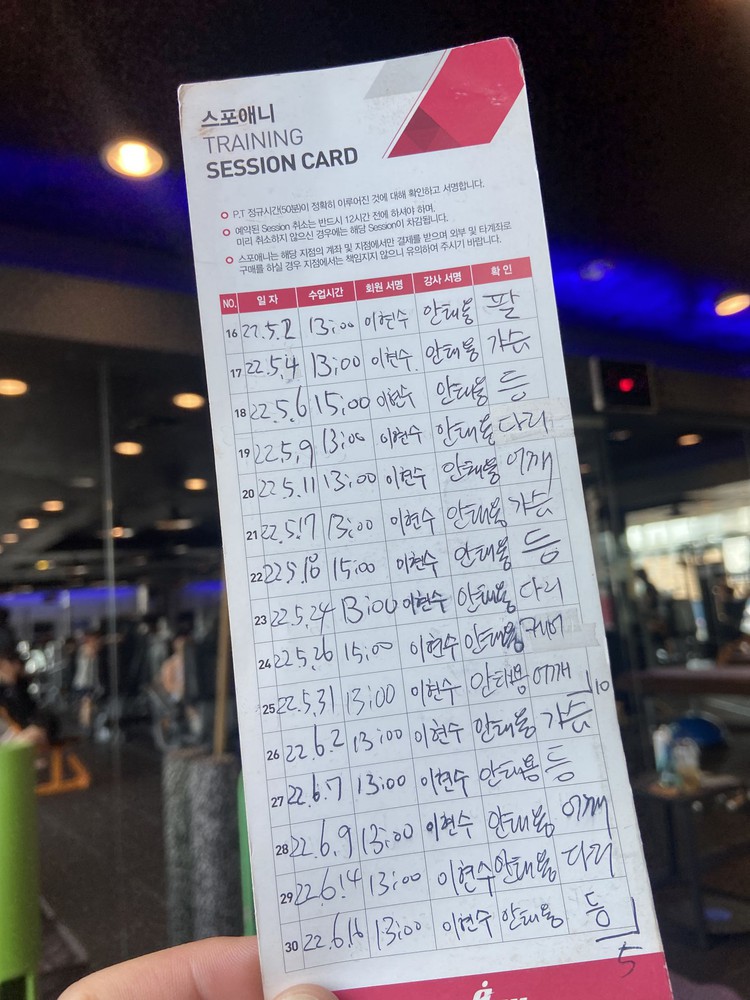 스포애니
TRAINING
SESSION CARD
P.T 정규시간(50분)이 정확히 이루어진 것에 대해 확인하고 서명합니다.
예약된 Session 취소는 반드시 12시간 전에 하셔야 하며,
미리 취소하지 않으신 경우에는 해당 Session이 차감됩니다.
스포애니는 해당 지점의 계좌 및 지점에서만 결제를 받으며 외부 및 타계좌로
구매를 하실 경우 지점에서는 책임지지 않으니 유의하여 주시기 바랍니다.
NO. 일 자 수업시간 회원 서명 강사 서명 확 인
16 22.5.2 13:00 이현수 안태용 팔
17 22.5.4 13:00 이현수 안태용 가슴
18 22.5.6 15:00 이현수 안태용 등
19 22.5.9 13:00 이현수 안태용 다리
20 22.5.11 13:00 이현수 안태용 어깨
21 22.5.17 13:00 이현수 안태용 가슴
22 22.5.18 15:00 이현수 안태용 등
23 22.5.24 13:00 이현수 안태용 다리
24 22.5.26 15:00 이현수 안태용 케어
25 22.5.31 13:00 이현수 안태용 어깨 10
26 22.6.2 13:00 이현수 안태용 가슴
27 22.6.7 13:00 이현수 안태용 등
28 22.6.9 13:00 이현수 안태용 어깨
29 22.6.14 13:00 이현수 안태용 다리
30 22.6.16 13:00 이현수 안태용 등
5